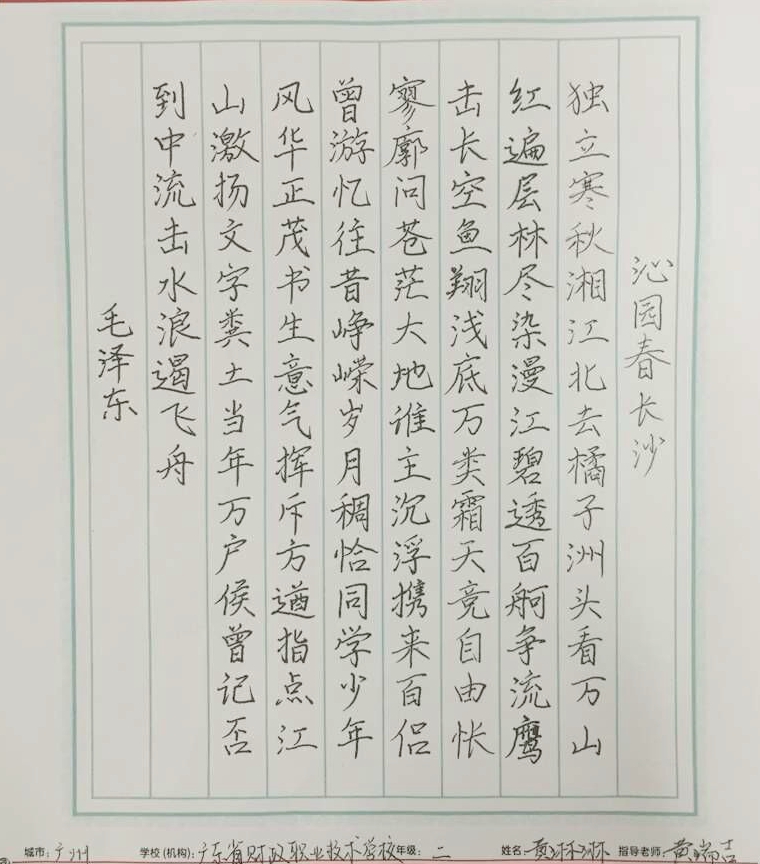 沁园春长沙
独立寒秋湘江北去橘子洲头看万山
红遍层林尽染漫江碧透百舸争流鹰
击长空鱼翔浅底万类霜天竞自由怅
寥廓问苍茫大地谁主沉浮携来百侣
曾游忆往昔峥嵘岁月稠恰同学少年
风华正茂书生意气挥斥方遒指点江
山激扬文字粪土当年万户侯曾记否
到中流击水浪遏飞舟
毛泽东
城市:广州 学校(机构):广东省财政职业技术学校 年级:二 姓名:黄琳琳 指导老师:黄瑞吉